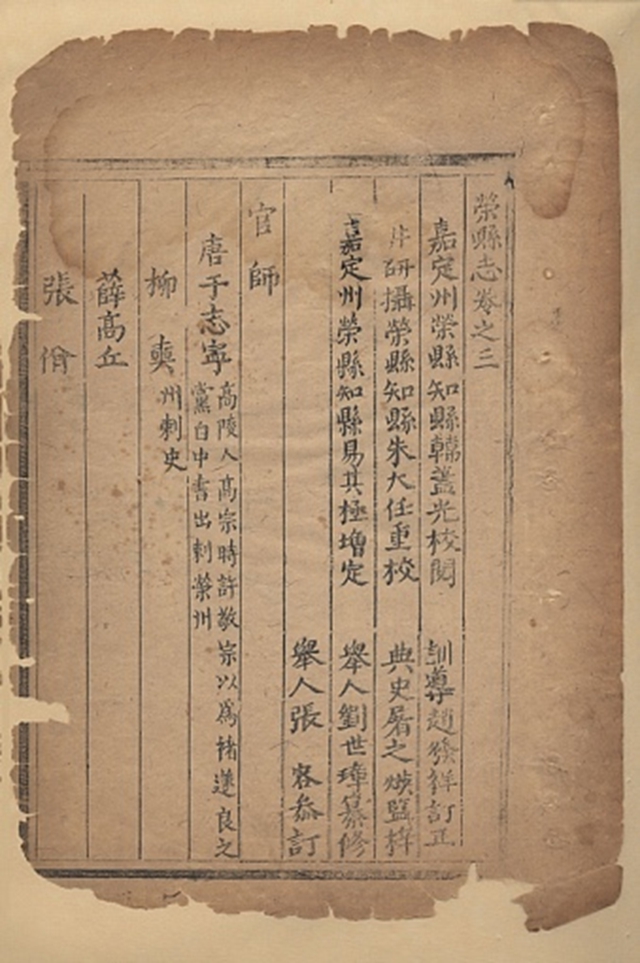 榮縣志卷之三
嘉定州榮縣知縣韓蓋光校閱 訓導趙發祥訂正
井研攝榮縣知縣朱大任重校 典史屠之煐監梓
嘉定州榮縣知縣易其極增定 舉人劉世璋纂修
舉人張 客叅訂
官師
唐于志寧 高陵人高宗時許敬宗以爲褚遂良之
黨白中書出刺榮州
柳奭 州刺史
薛高丘
張